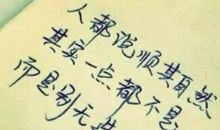 人都说顺其自然
其实一点都不是
而是别无